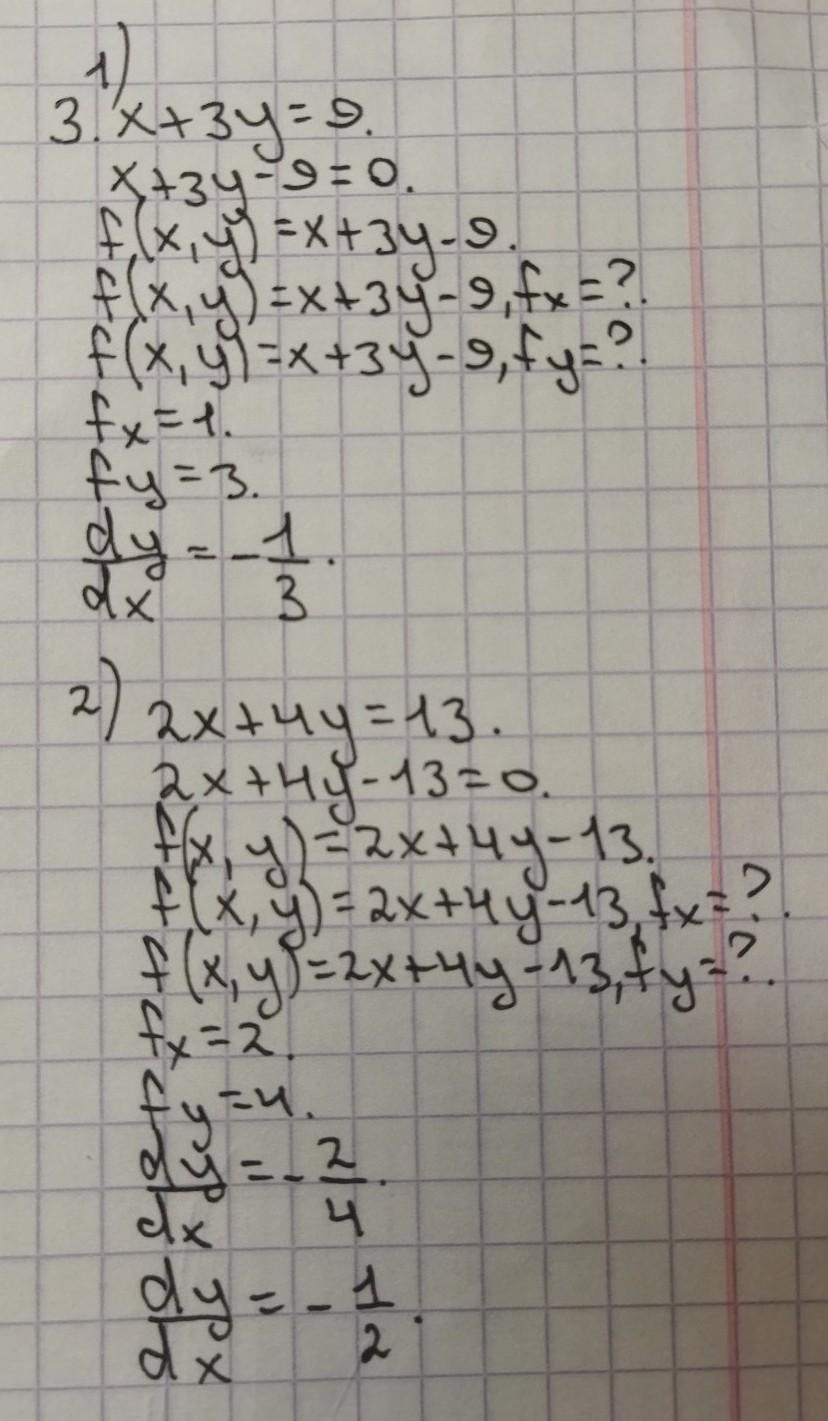 1)
3. x+3y=9.
x+3y-9=0.
f(x,y)=x+3y-9.
f(x,y)=x+3y-9, fx=?.
f(x,y)=x+3y-9, fy=?.
fx=1.
fy=3.
dy/dx=-1/3.
2) 2x+4y=13.
2x+4y-13=0.
f(x,y)=2x+4y-13.
f(x,y)=2x+4y-13, fx=?.
f(x,y)=2x+4y-13, fy=?.
fx=2.
fy=4.
dy/dx=-2/4.
dy/dx=-1/2.